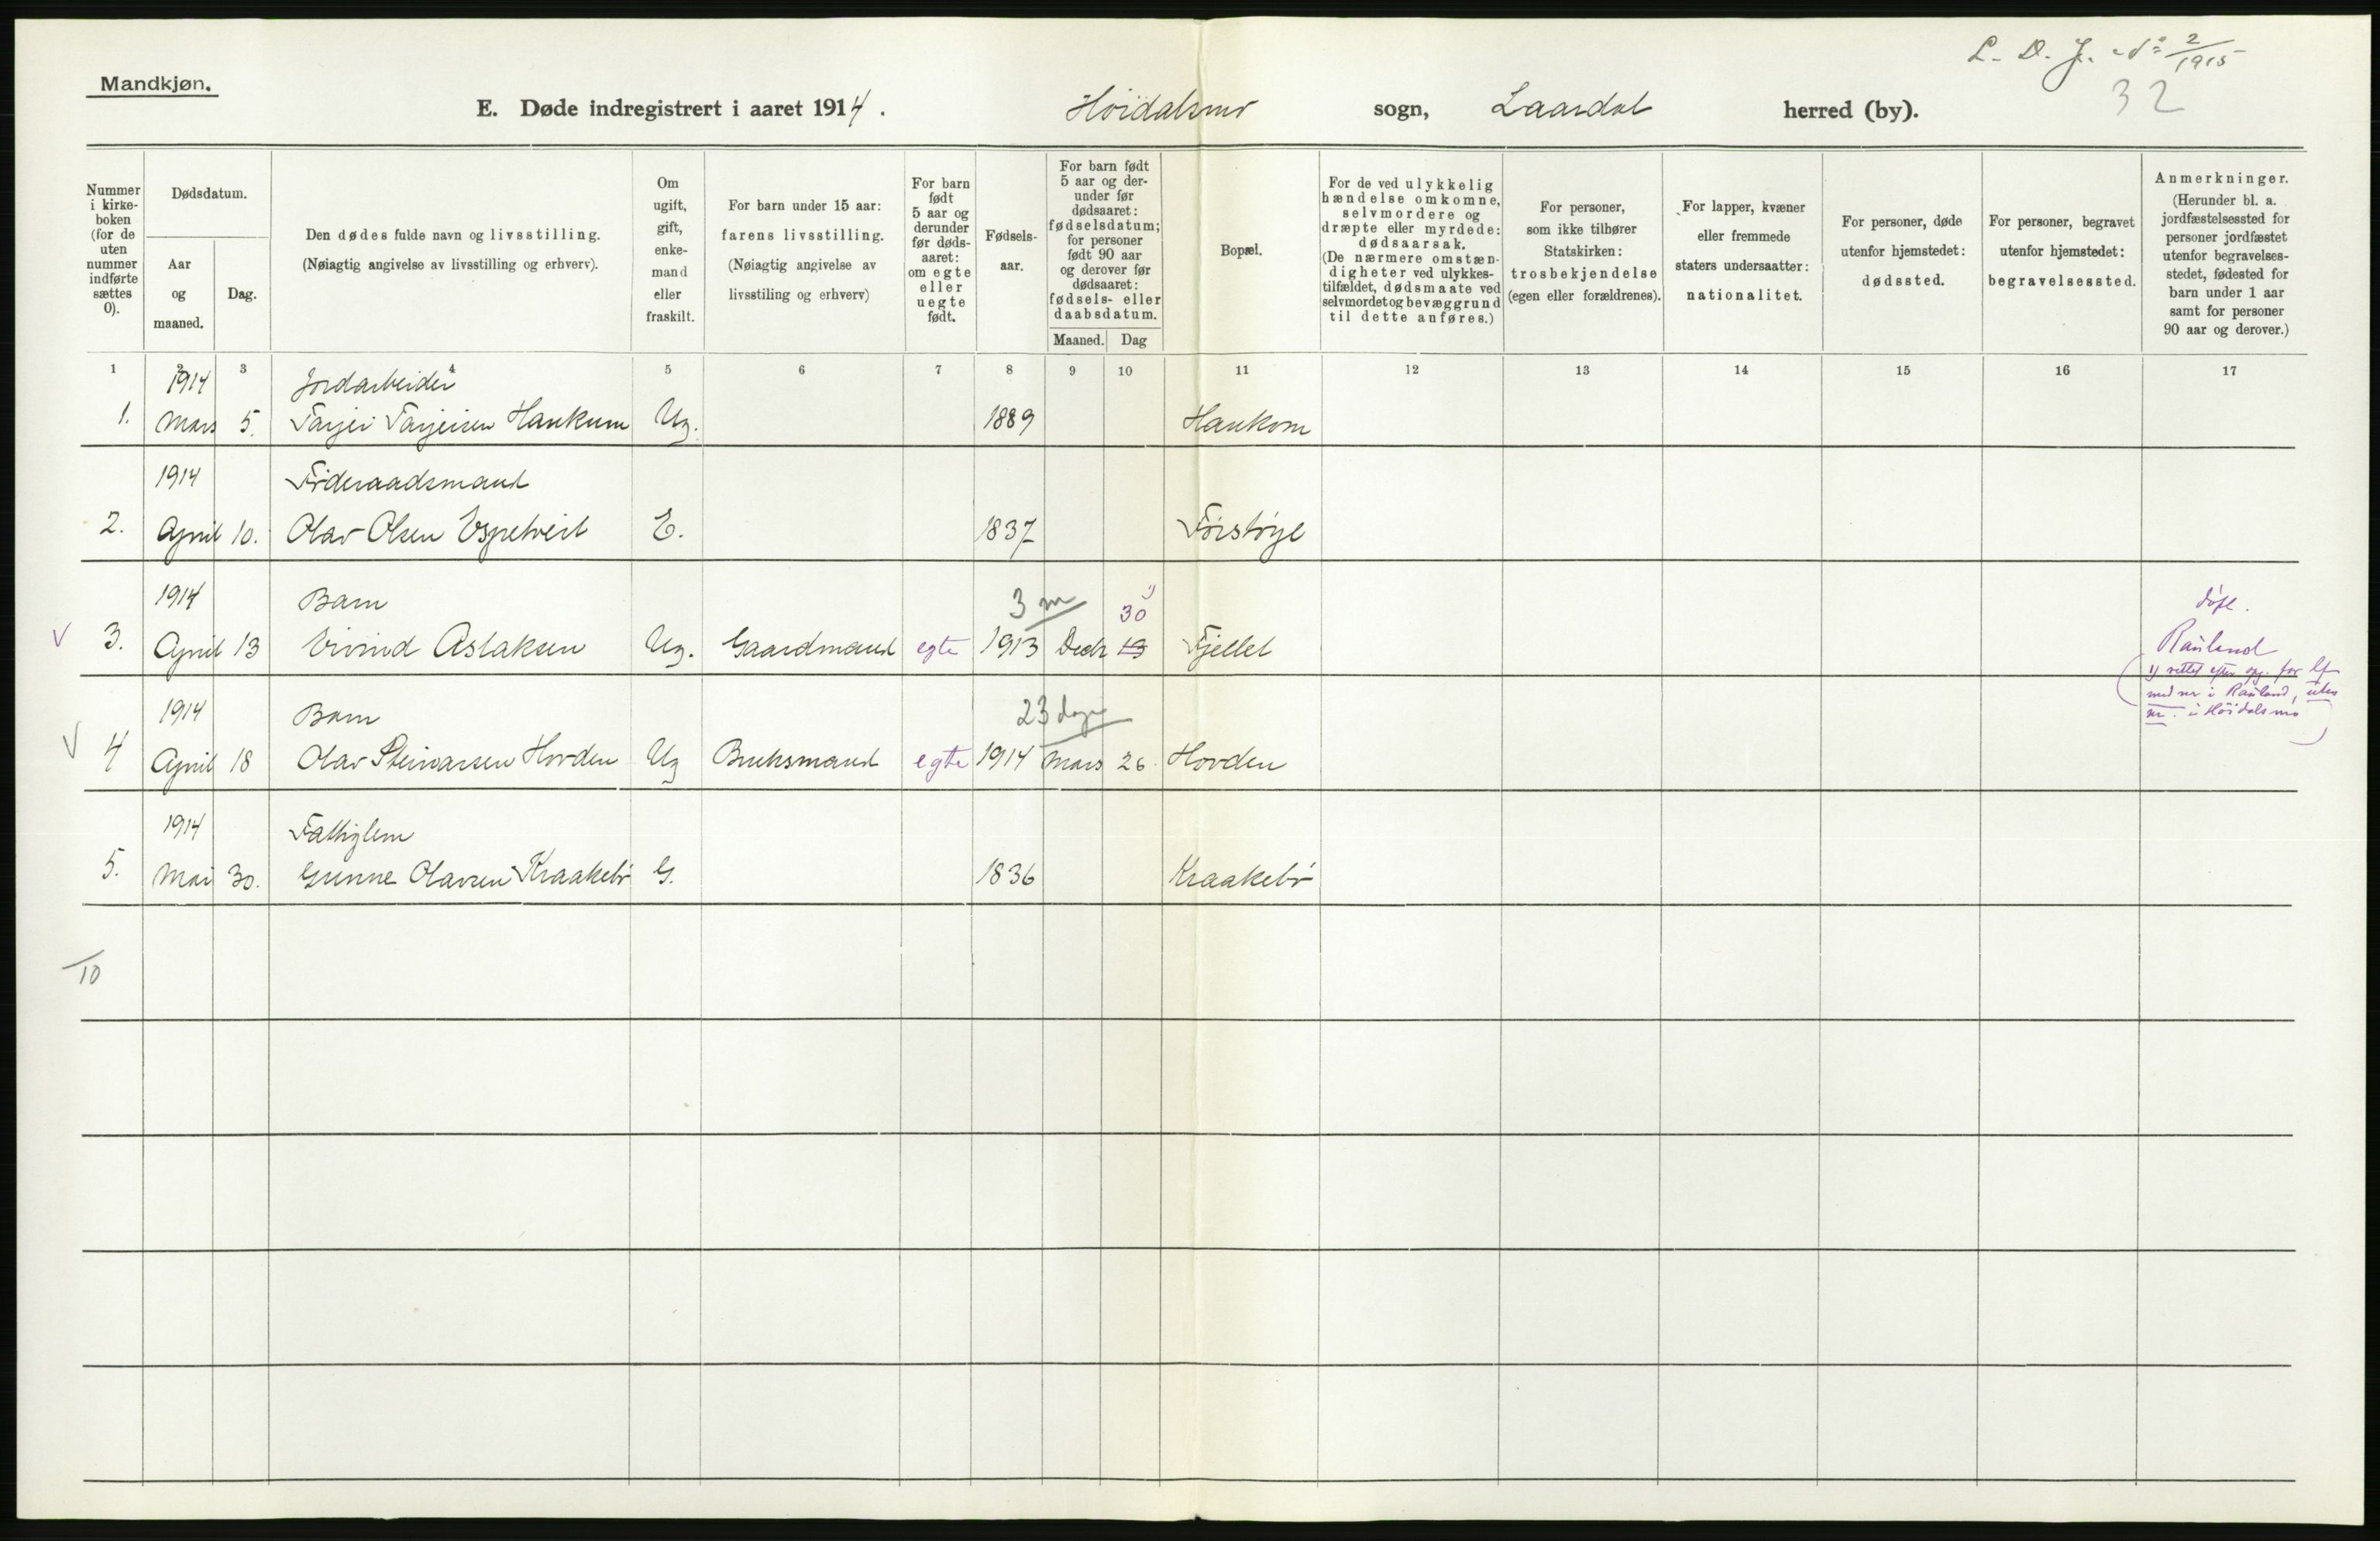 L. D. J. 2/1915
32
Mandkjøn.
E. Døde indregistrert i aaret 1914. Høidalsmo sogn, Laardal herred (by).
Nummer i kirke-boken (for de uten nummer indførte sættes 0).
Dødsdatum.
Aar og maaned.
Dag.
Den dødes fulde navn og livsstilling.
(Nøiagtig angivelse av livsstilling og erhverv).
Om ugift, gift, enke-mand eller fraskilt.
For barn under 15 aar: farens livsstilling.
(Nøiagtig angivelse av livsstiling og erhverv)
For barn født 5 aar og derunder før døds-aaret: om egte eller uegte født.
Fødsels-aar.
For barn født 5 aar og der-under før dødsaaret: fødselsdatum; for personer født 90 aar og derover før dødsaaret: fødsels- eller daabsdatum.
Maaned. Dag
Bopæl.
For de ved ulykkelig hændelse omkomne, selvmordere og dræpte eller myrdede: dødsaarsak.
(De nærmere omstæn-digheter ved ulykkes-tilfældet, dødsmaate ved selvmordet og bevæggrund til dette anføres.)
For personer, som ikke tilhører Statskirken: trosbekjendelse (egen eller forældrenes).
For lapper, kvæner eller fremmede staters undersaatter: nationalitet.
For personer, døde utenfor hjemstedet: dødssted.
For personer, begravet utenfor hjemstedet: begravelsessted.
Anmerkninger.
(Herunder bl. a. jordfæstelsessted for personer jordfæstet utenfor begravelses-stedet, fødested for barn under 1 aar samt for personer 90 aar og derover.)
1 2 3 4 5 6 7 8 9 10 11 12 13 14 15 16 17
1914 Jordarbeider
1. Mars 5. Tarjei Tarjeisen Haukum Ug. 1889 Haukom
1914 Føderaadsmand
2. April 10. Olav Olsen Espetveit E. 1837 Førstøyl
1914 Barn 3 m 30 1) døpt.
V 3. April 13 Eivind Aslaksen Ug. Gaardmand egte 1913 Decbr 13 Fjellet Rauland
1) rettet efter opg. for lf
med nr i Rauland, uten
nr. i Høidalsmo
1914 Barn 23 dage
V 4 April 18 Olav Steinarsen Hovden Ug Bruksmand egte 1914 Mars 26. Hovden
1914 Fattiglem
5. Mai 30. Gunne Olavsen Kraakebø G. 1836 Kraakebø
10